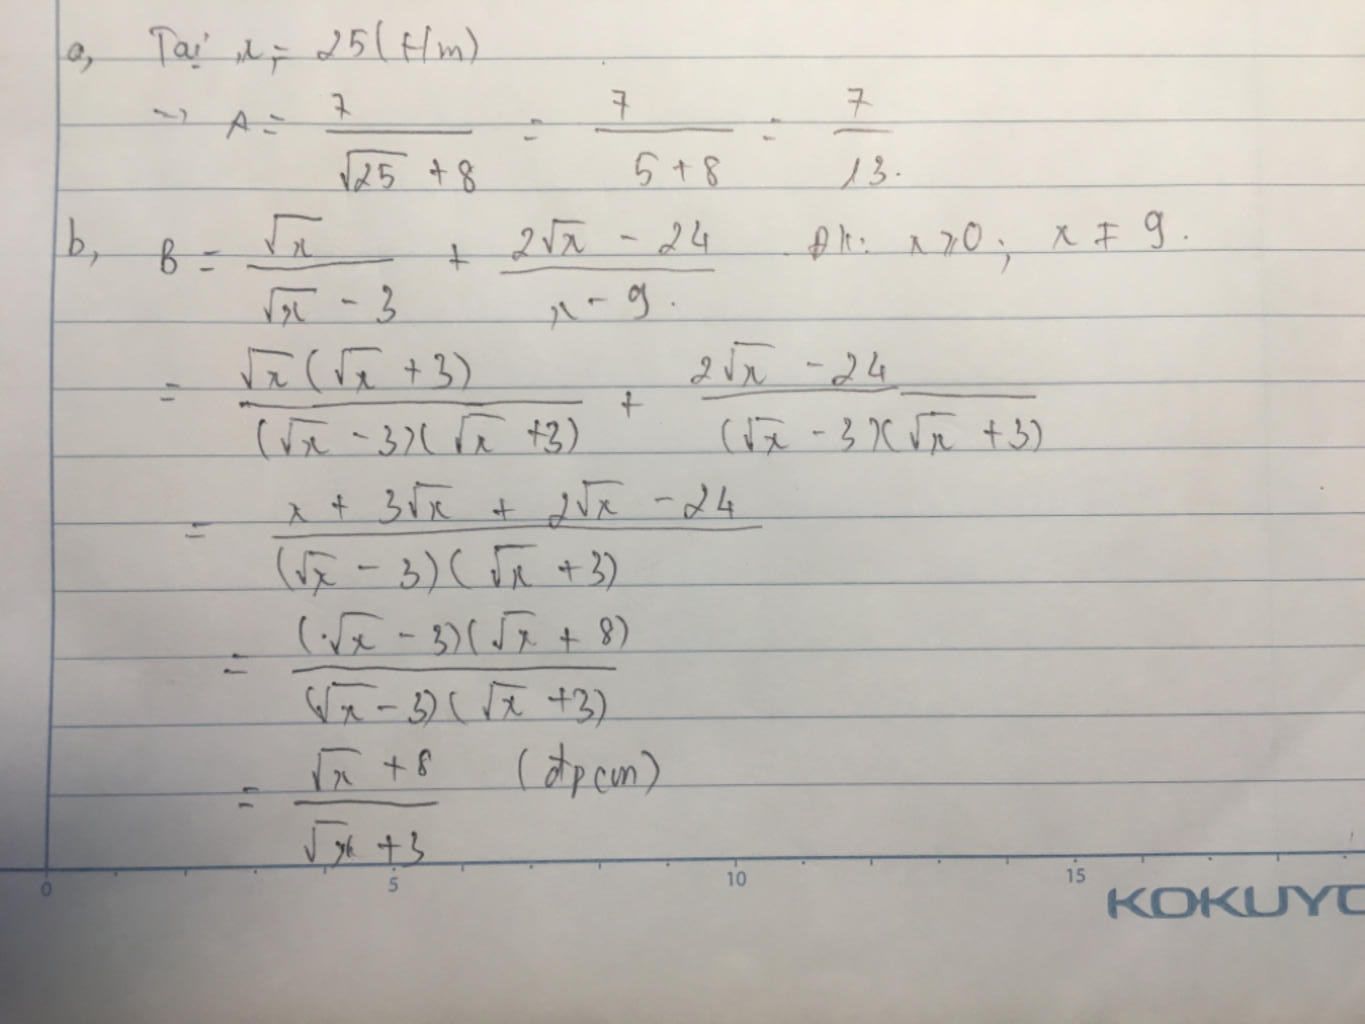 a, Tại x = 25 (t/m)
=> A = 7/(√25 + 8) = 7/(5 + 8) = 7/13.
b, B = √x/(√x - 3) + (2√x - 24)/(x - 9). ĐK: x ≥ 0; x ≠ 9.
= √x(√x + 3)/((√x - 3)(√x + 3)) + (2√x - 24)/((√x - 3)(√x + 3))
= (x + 3√x + 2√x - 24)/((√x - 3)(√x + 3))
= (√x - 3)(√x + 8)/((√x - 3)(√x + 3))
= (√x + 8)/(√x + 3) (đpcm)
0 5 10 15
KOKUYO